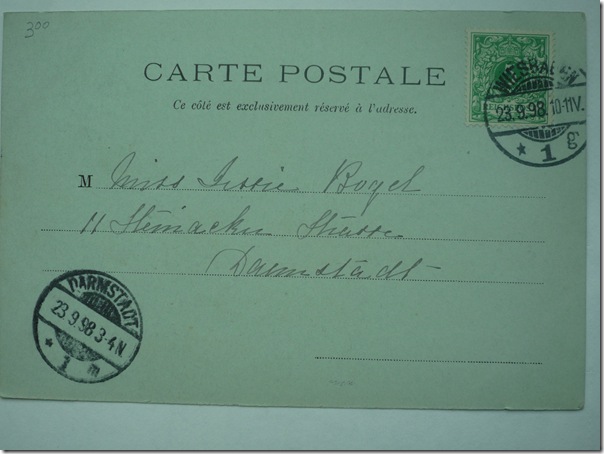 300
CARTE POSTALE
Ce côté est exclusivement réservé à l'adresse.
WIESBADEN
23.9.98 10-11V.
* 1 g
M Miss Jessie Boget
11 Steinacker Strasse
Darmstadt
DARMSTADT
23.9.98 3-4N.
* 1 m